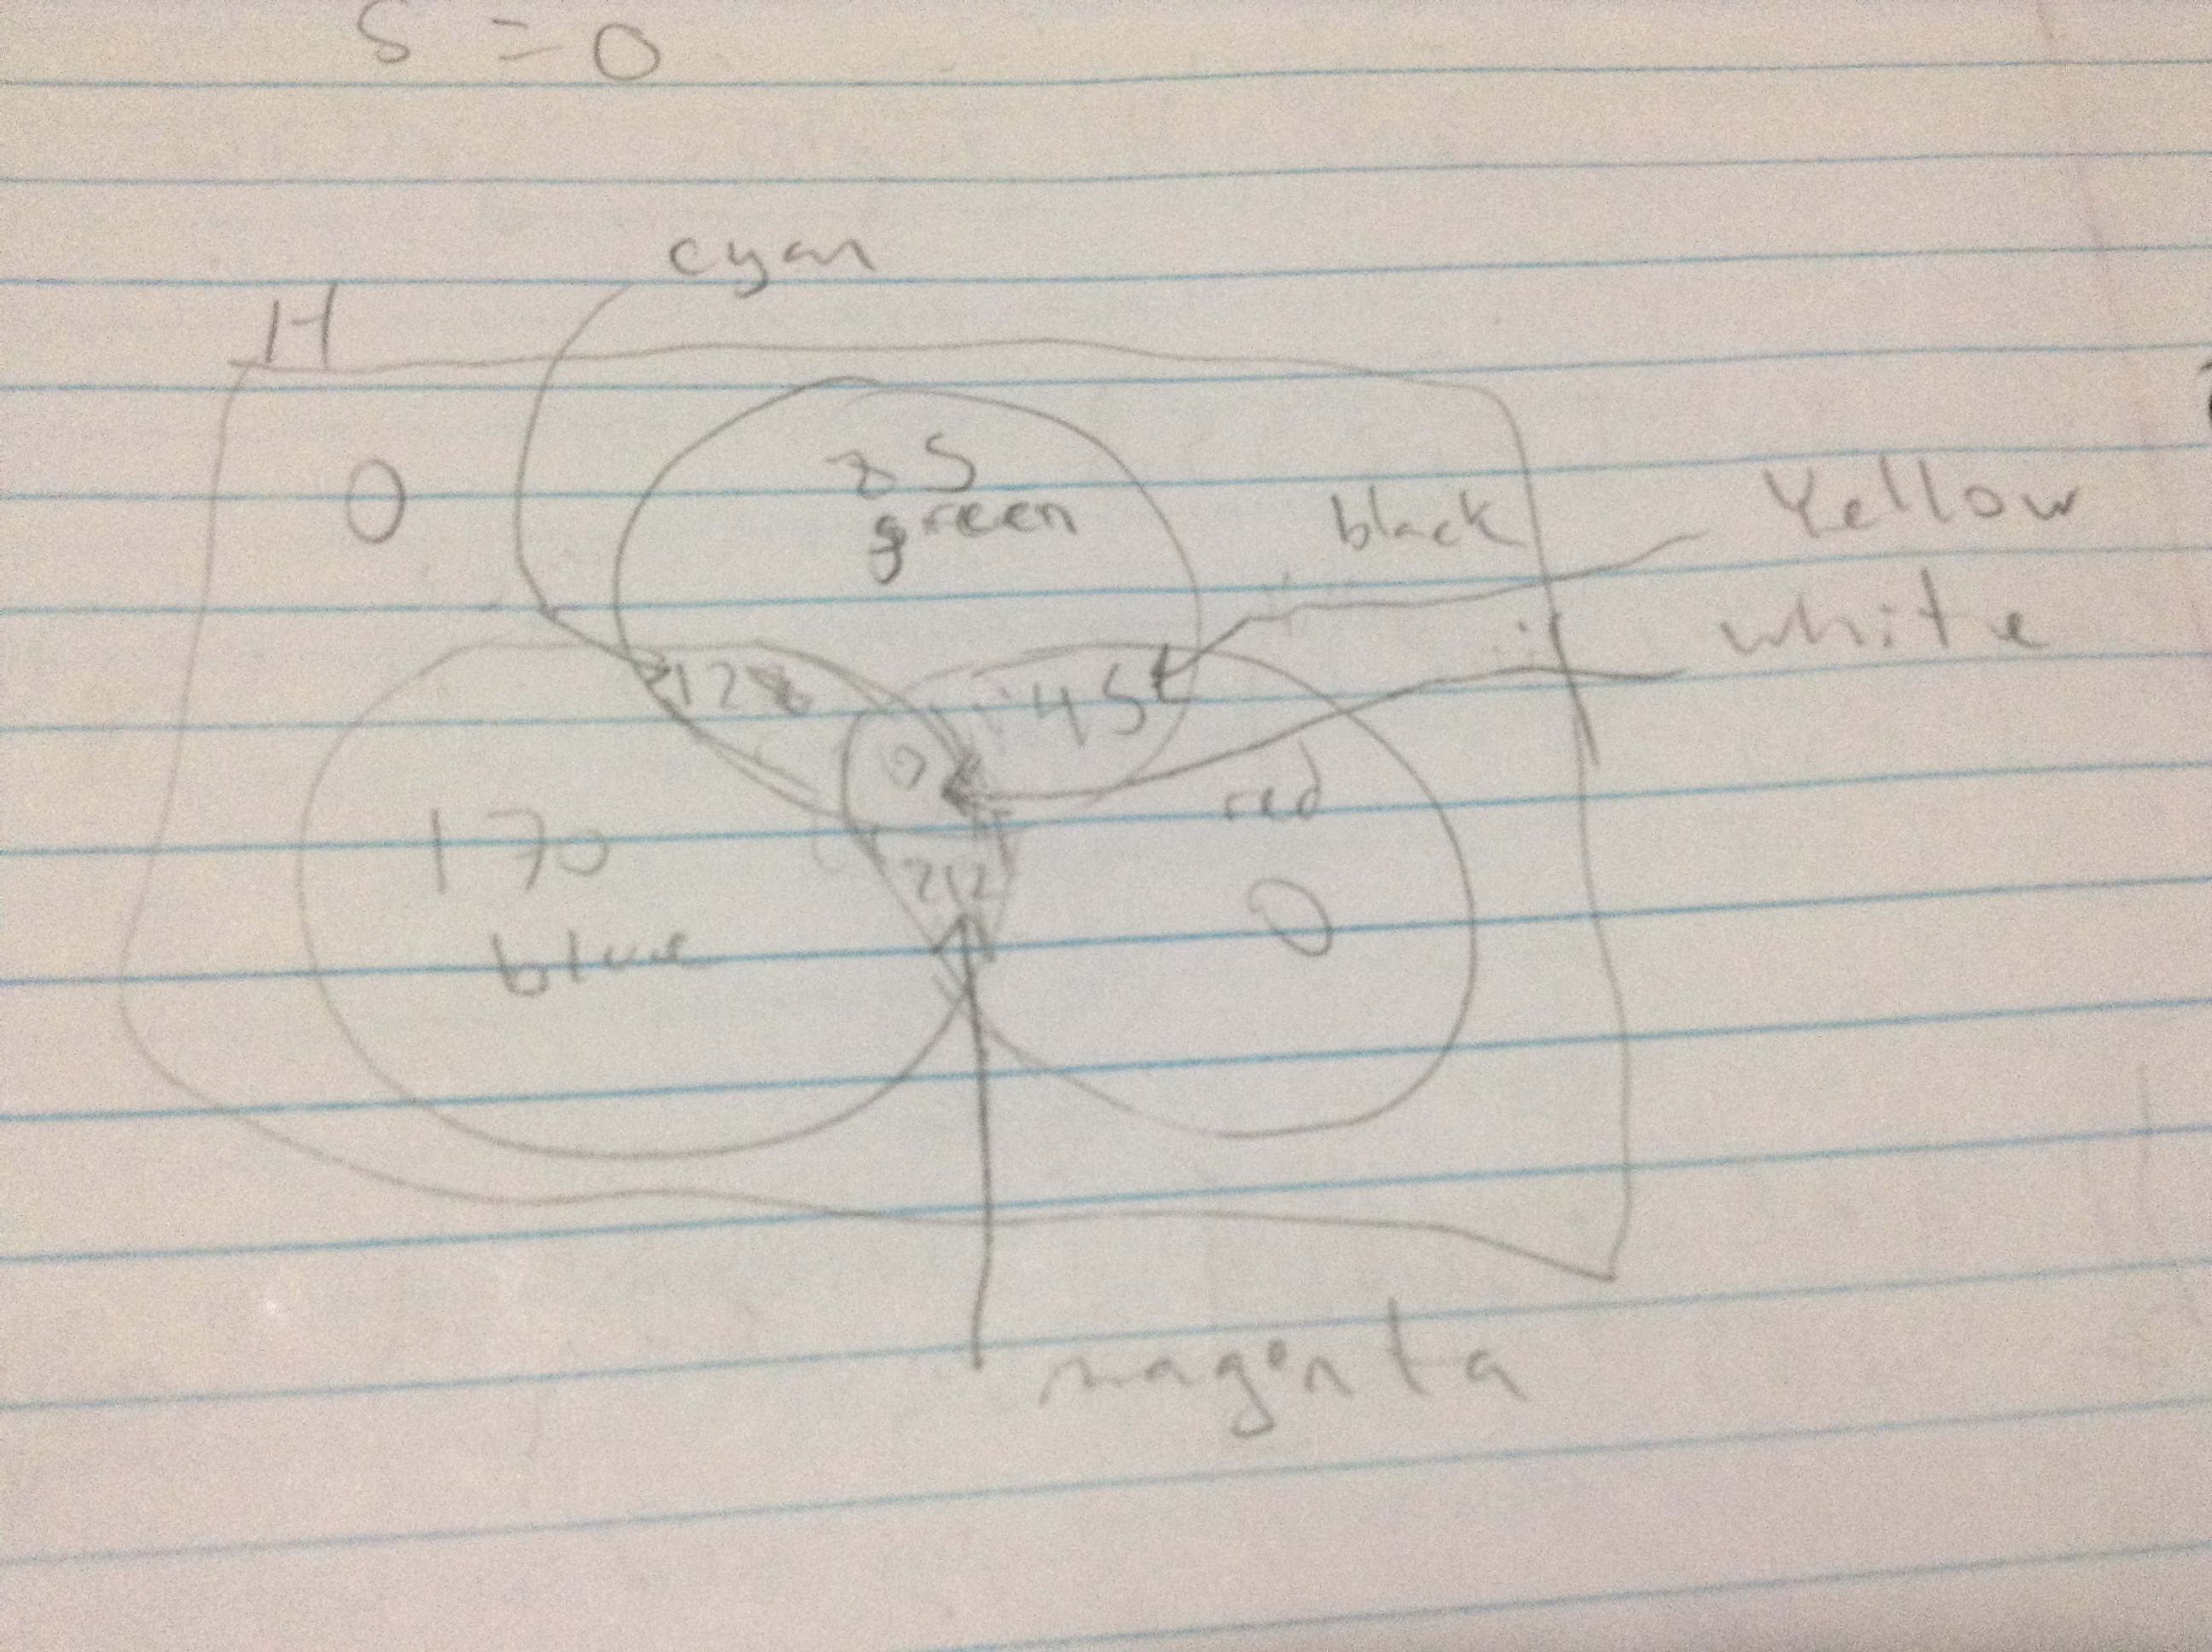 S = 0
cyan
H
0
85
green
black
Yellow
white
128
45
0
red
170
212
0
blue
magenta